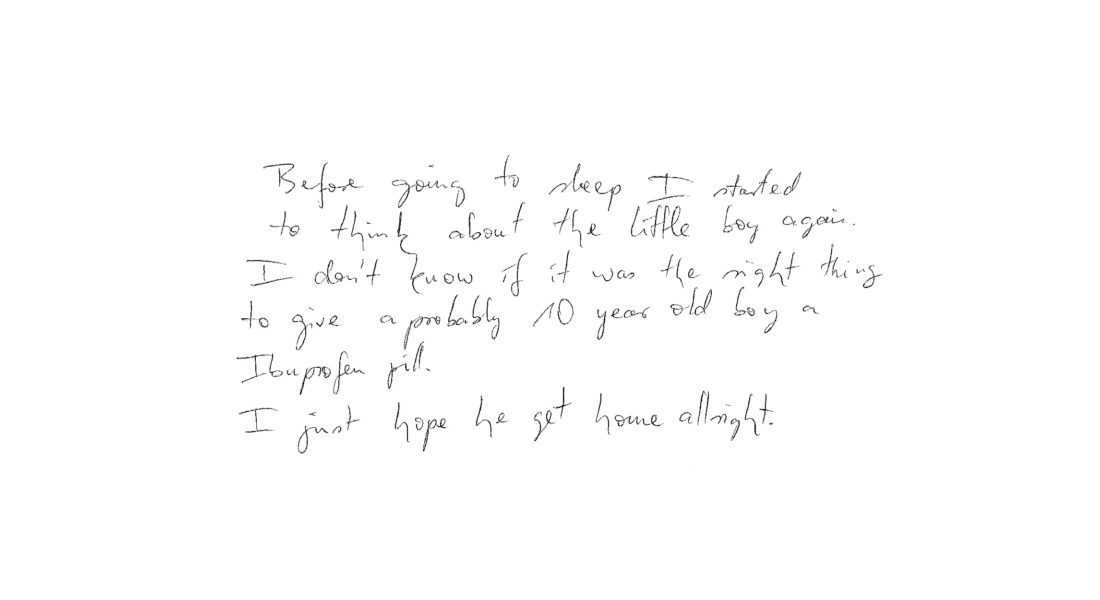 Before going to sleep I started
to think about the little boy again.
I don't know if it was the right thing
to give a probably 10 year old boy a
Ibuprofen pill.
I just hope he get home allright.